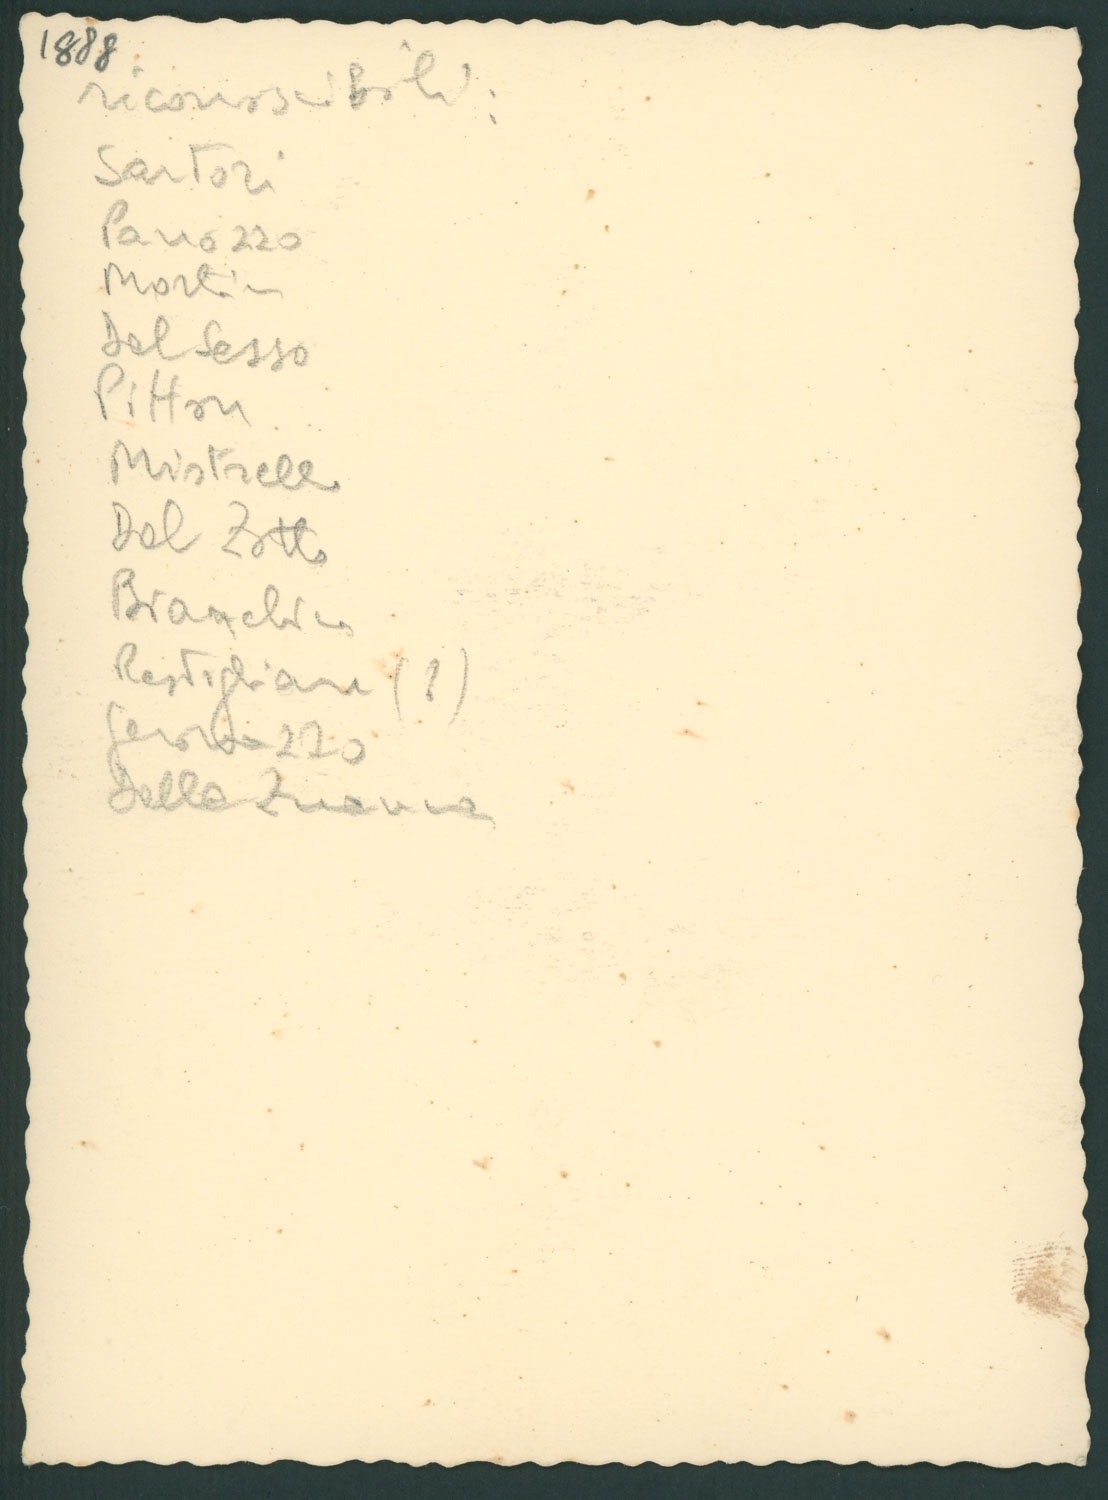 1888
riconoscibili:
Sartori
Panozzo
Martin
Dal Sasso
Pitton
Mistrello
Dal Zotto
Bianchin
Rastigliano (?)
Della Zuanna